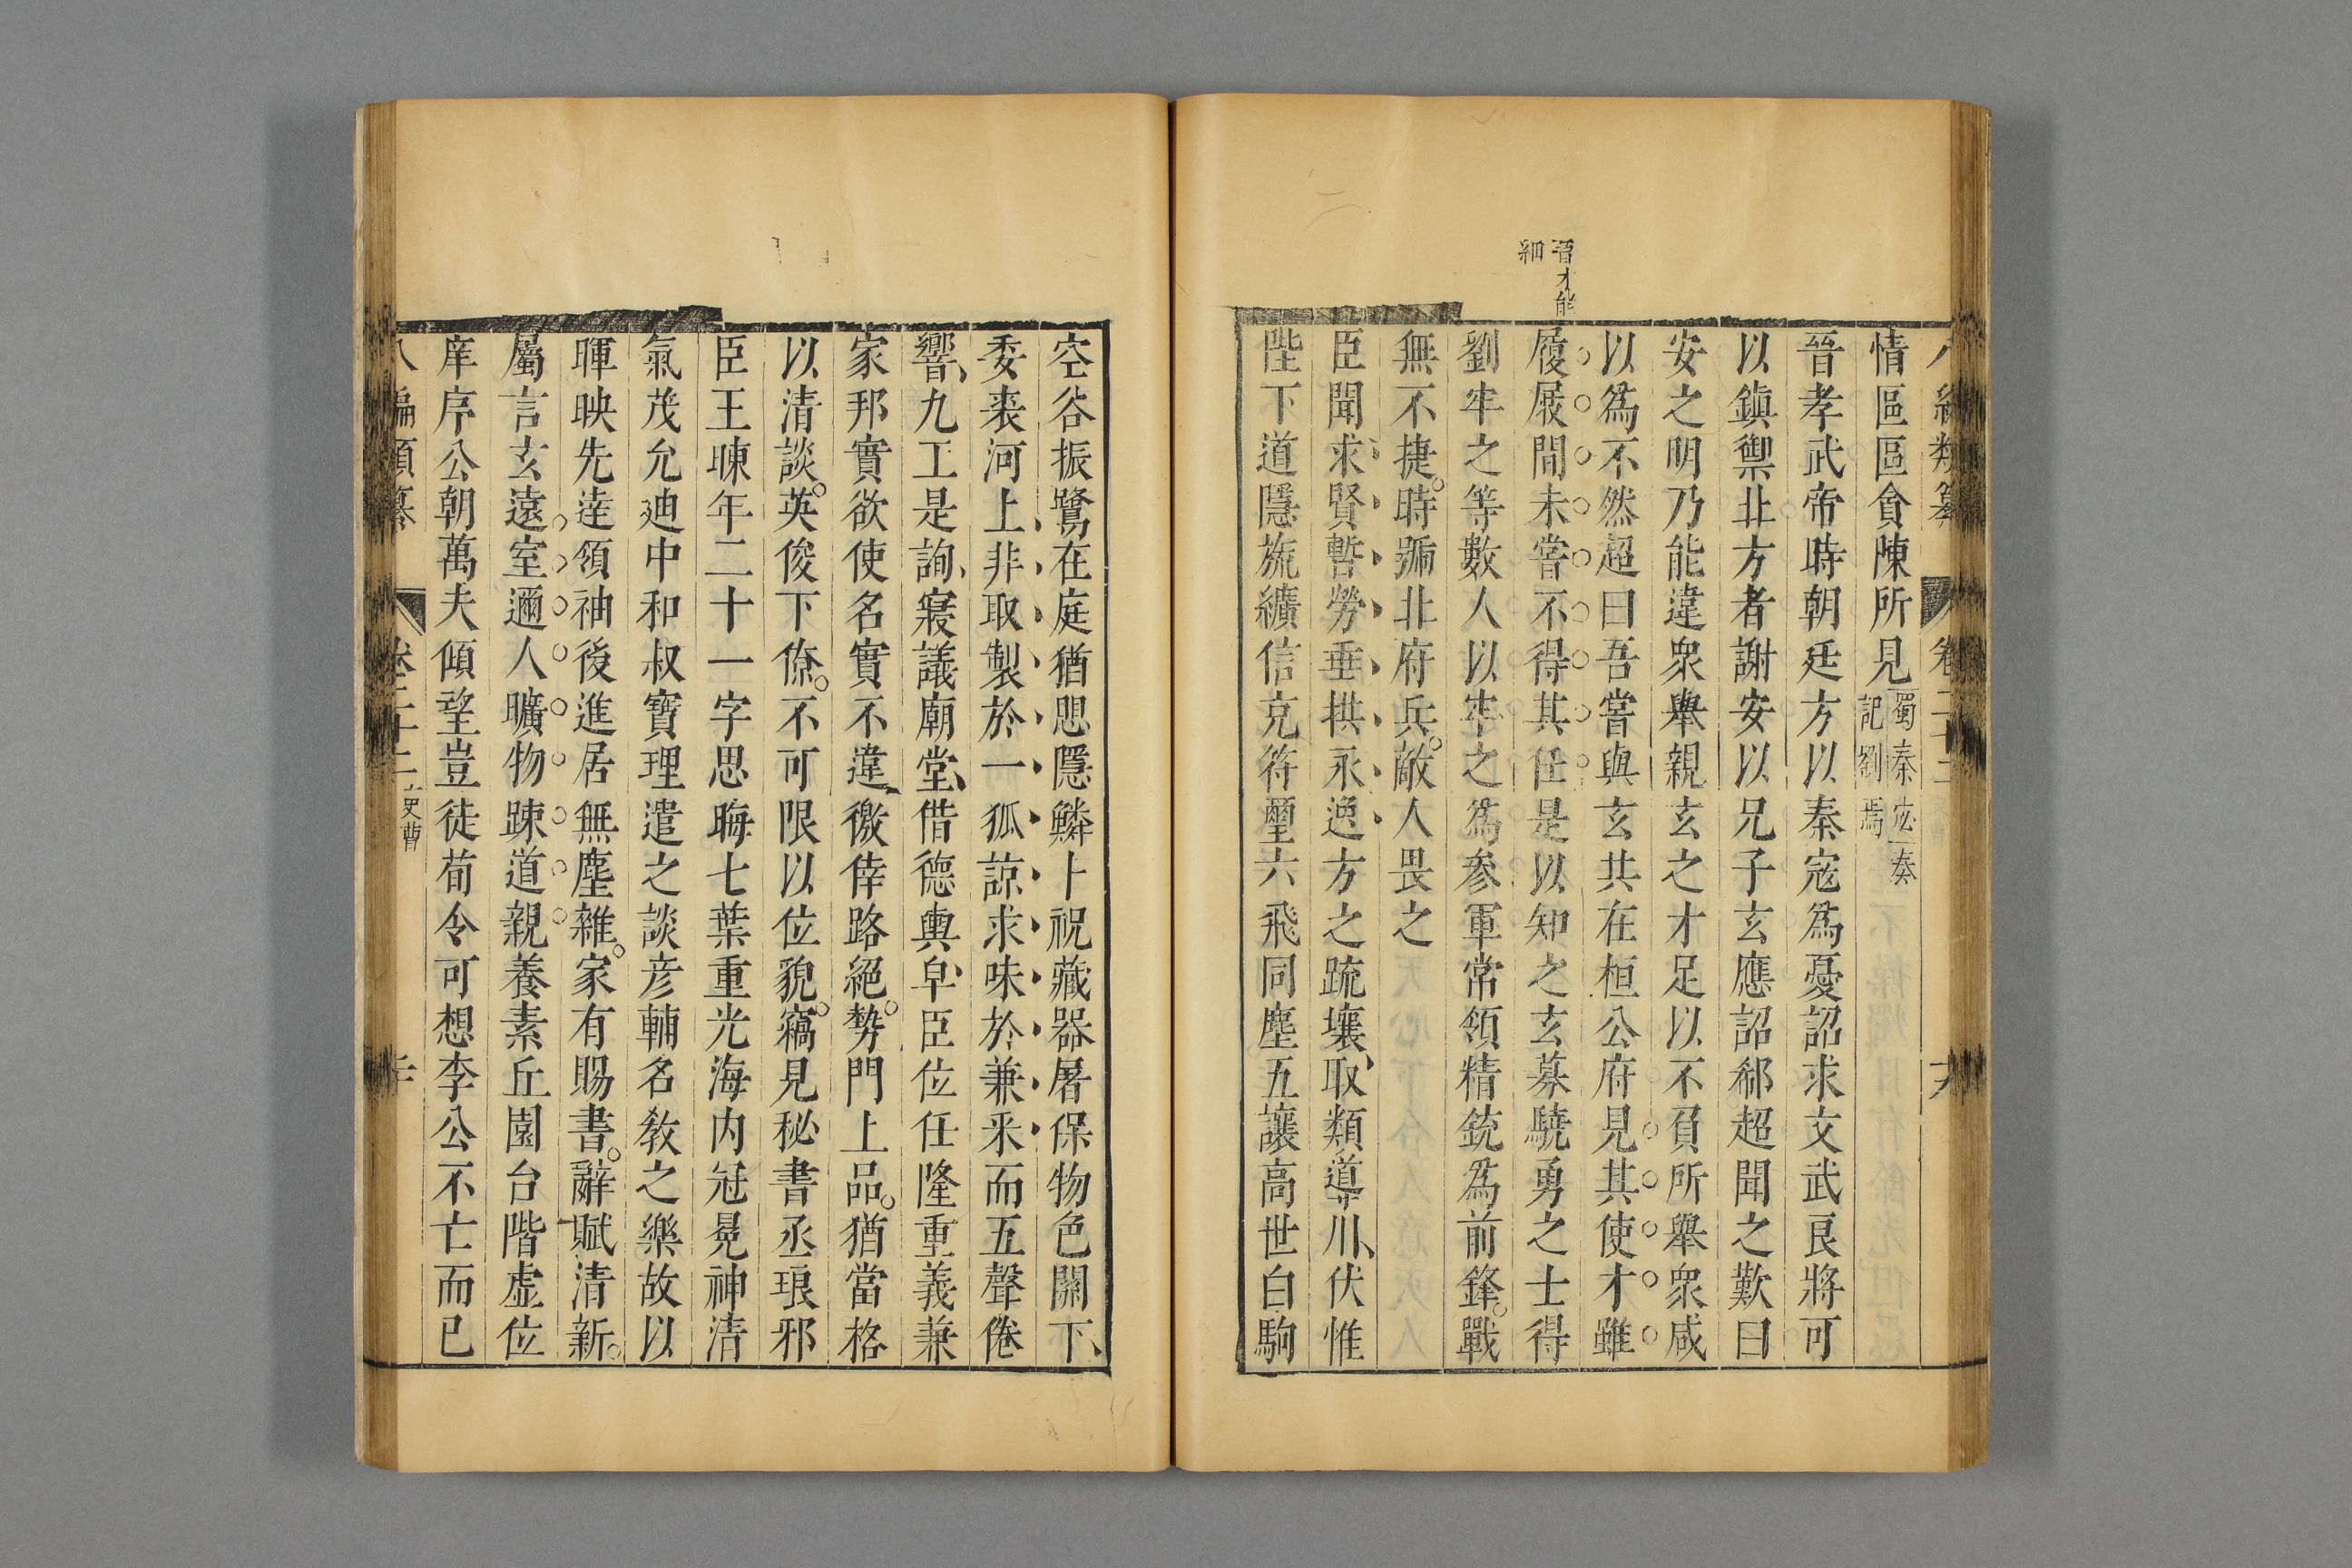 八編類纂 卷二十二 十九
情區區貪陳所見蜀秦宓奏記劉焉
晉孝武帝時朝廷方以秦寇爲憂詔求文武良將可
以鎮禦北方者謝安以兄子玄應詔郗超聞之歎曰
安之明乃能違眾舉親玄之才足以不負所舉眾咸
以爲不然超曰吾嘗與玄共在桓公府見其使才雖
履屐間未嘗不得其任是以知之玄募驍勇之士得
晉才能
細
劉牢之等數人以牢之爲參軍常領精銳爲前鋒戰
無不捷時號北府兵敵人畏之
臣聞求賢暫勞垂拱永逸方之疏壤取類導川伏惟
陛下道隱旒纊信充符璽六飛同塵五讓高世白駒
空谷振鷺在庭猶思隱鱗卜祝藏器屠保物色關下
委裘河上非取製於一狐諒求味於兼采而五聲倦
響九工是詢寢議廟堂借德輿皁臣位任隆重義兼
家邦實欲使名實不違徼倖路絕勢門上品猶當格
以清談英俊下僚不可限以位貌竊見秘書丞琅邪
臣王暕年二十一字思晦七葉重光海內冠冕神清
氣茂允迪中和叔寶理遣之談彥輔名教之樂故以
暉映先達領袖後進居無塵雜家有賜書辭賦清新
屬言玄遠室邇人曠物疎道親養素丘園台階虛位
庠序公朝萬夫傾望豈徒荀令可想李公不亡而已
八編類纂 卷二十二 吏曹